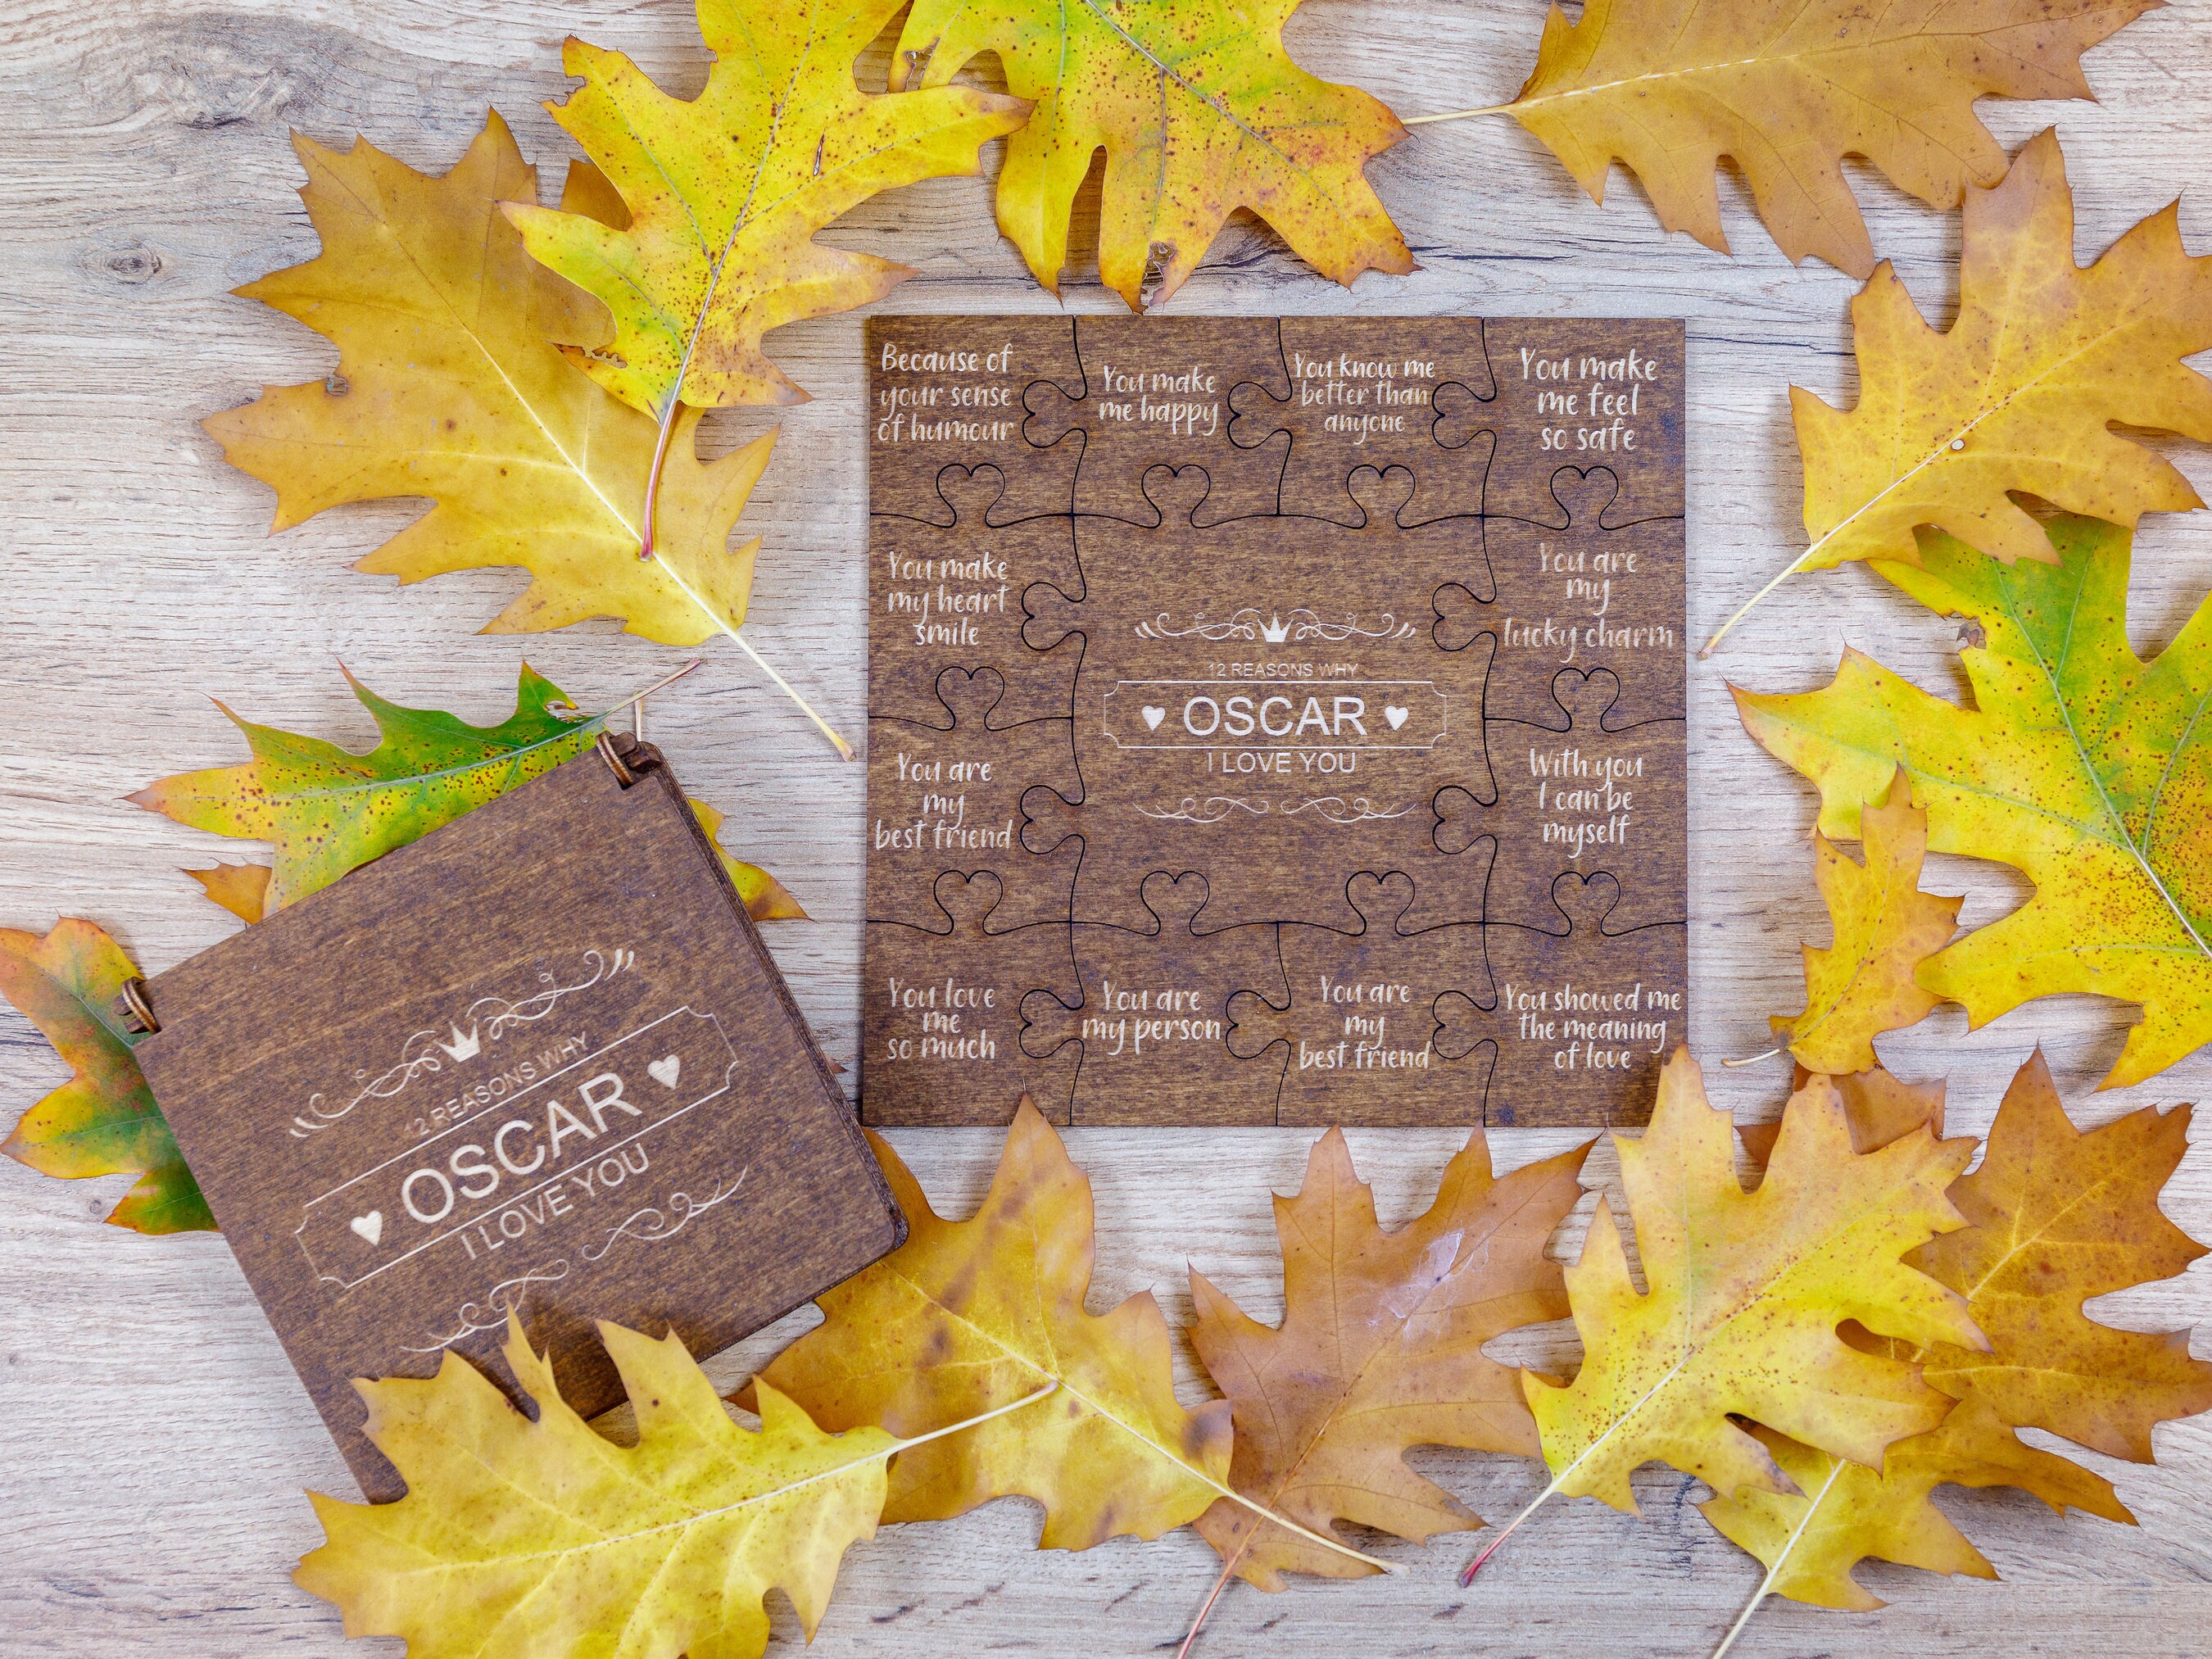 Because of
your sense
of humour
You make
me happy
You know me
better than
anyone
You make
me feel
so safe
You make
my heart
smile
12 REASONS WHY
OSCAR
I LOVE YOU
You are
my
lucky charm
You are
my
best friend
With you
I can be
myself
You love
me
so much
You are
my person
You are
my
best friend
You showed me
the meaning
of love
12 REASONS WHY
OSCAR
I LOVE YOU